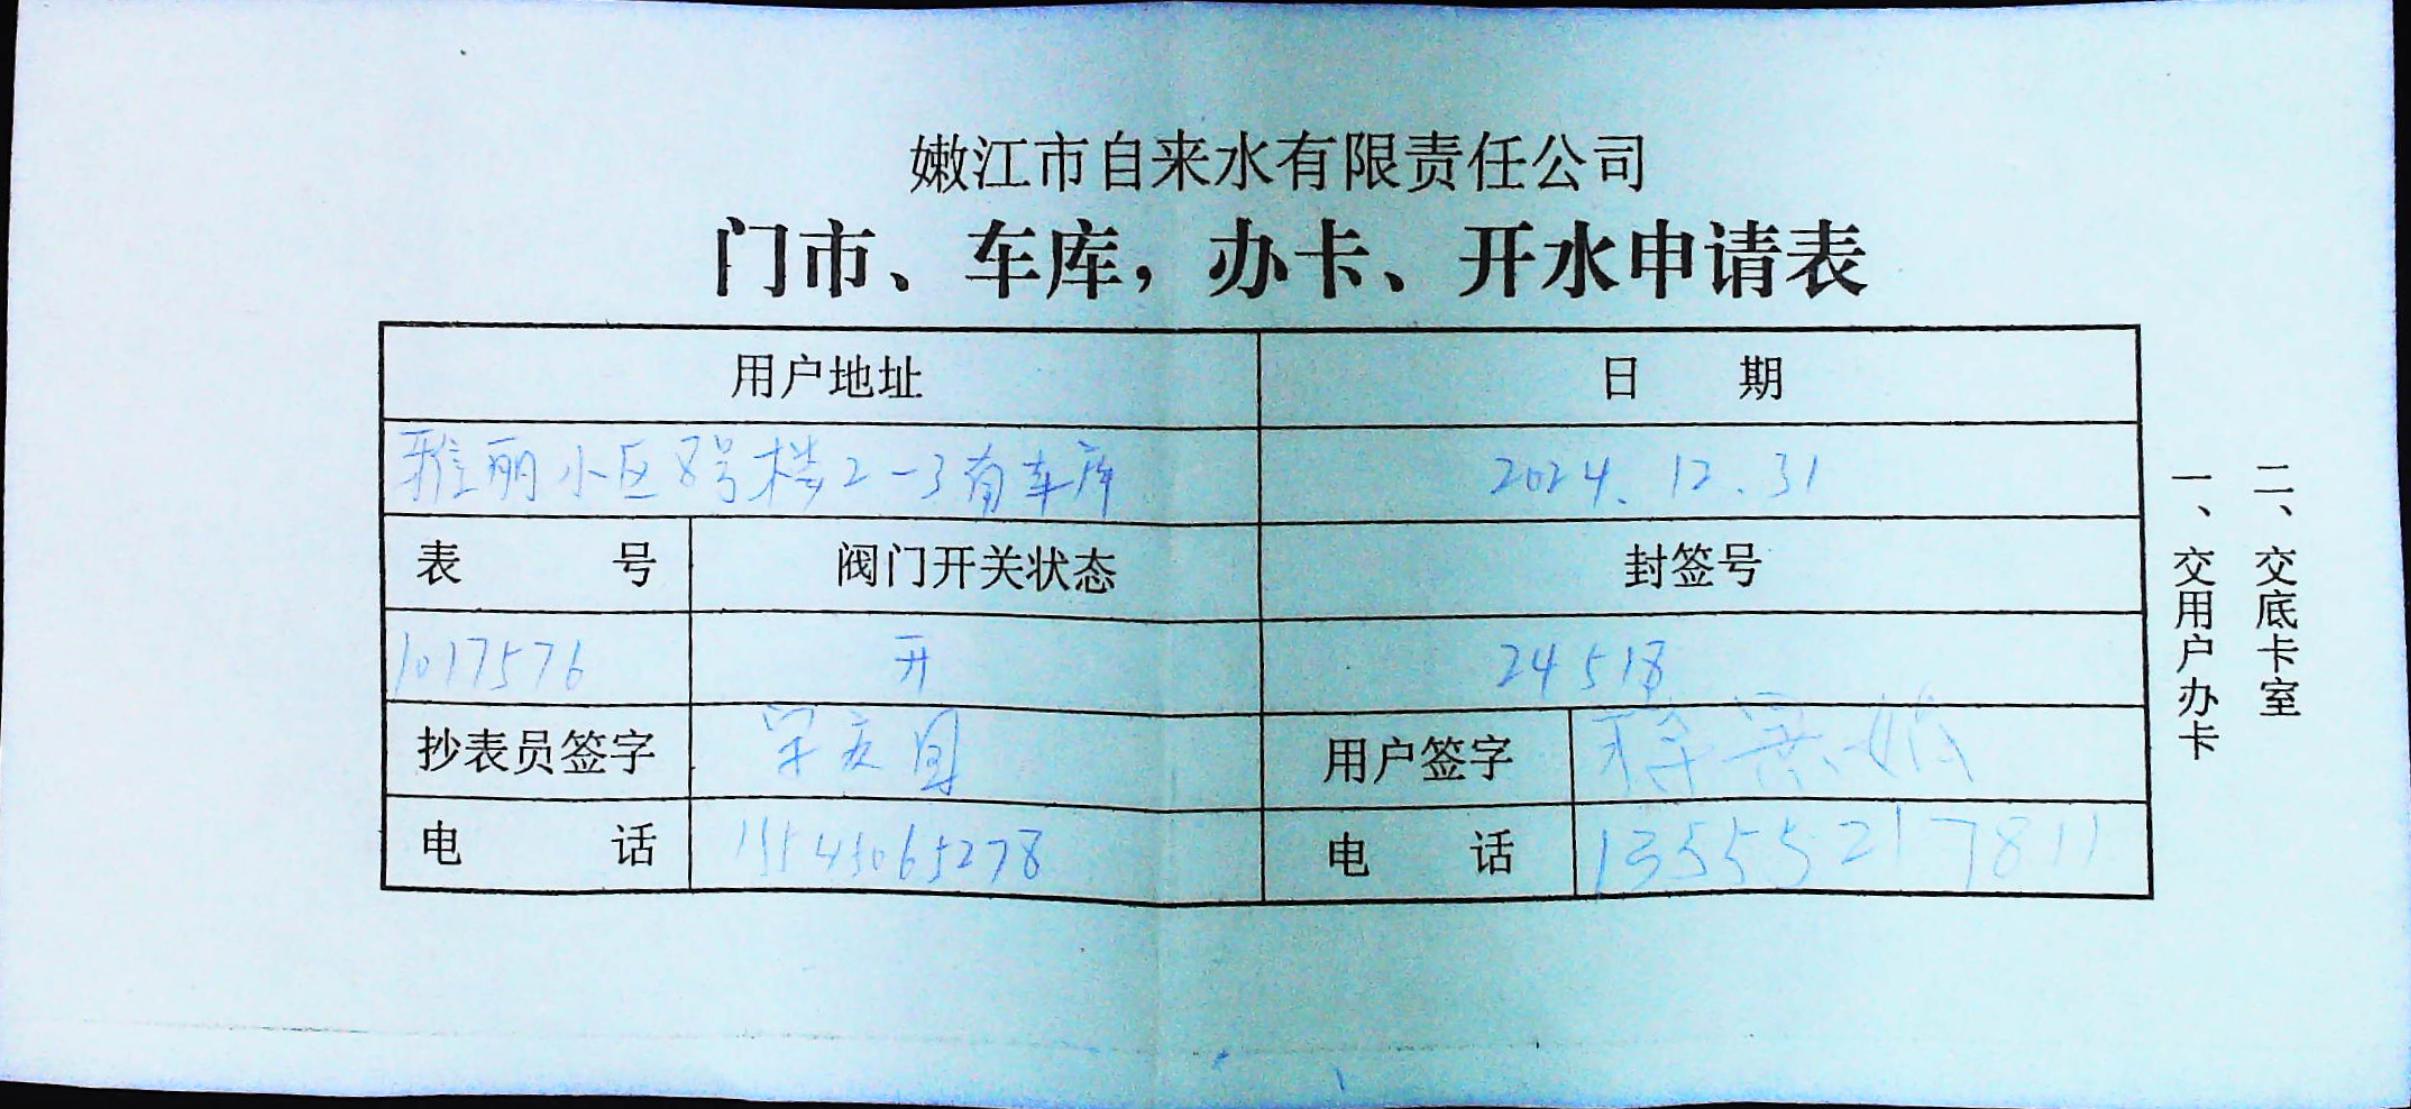 嫩江市自来水有限责任公司
门市、车库，办卡、开水申请表
用户地址 日 期
雅丽小区8号楼2-3南车库 2024.12.31
表 号 阀门开关状态 封签号
1017576 开 24518
抄表员签字 用户签字
电 话 电 话 13555217811
一、交用户办卡
二、交底卡室